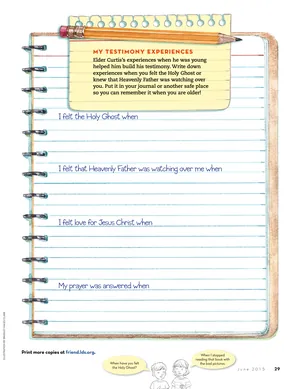 MY TESTIMONY EXPERIENCES
Elder Curtis's experiences when he was young
helped him build his testimony. Write down
experiences when you felt the Holy Ghost or
knew that Heavenly Father was watching over
you. Put it in your journal or another safe place
so you can remember it when you are older!
I felt the Holy Ghost when
I felt that Heavenly Father was watching over me when
I felt love for Jesus Christ when
My prayer was answered when
Print more copies at friend.lds.org.
When have you felt
the Holy Ghost?
When I stopped
reading that book with
the bad pictures.
June 2015 29